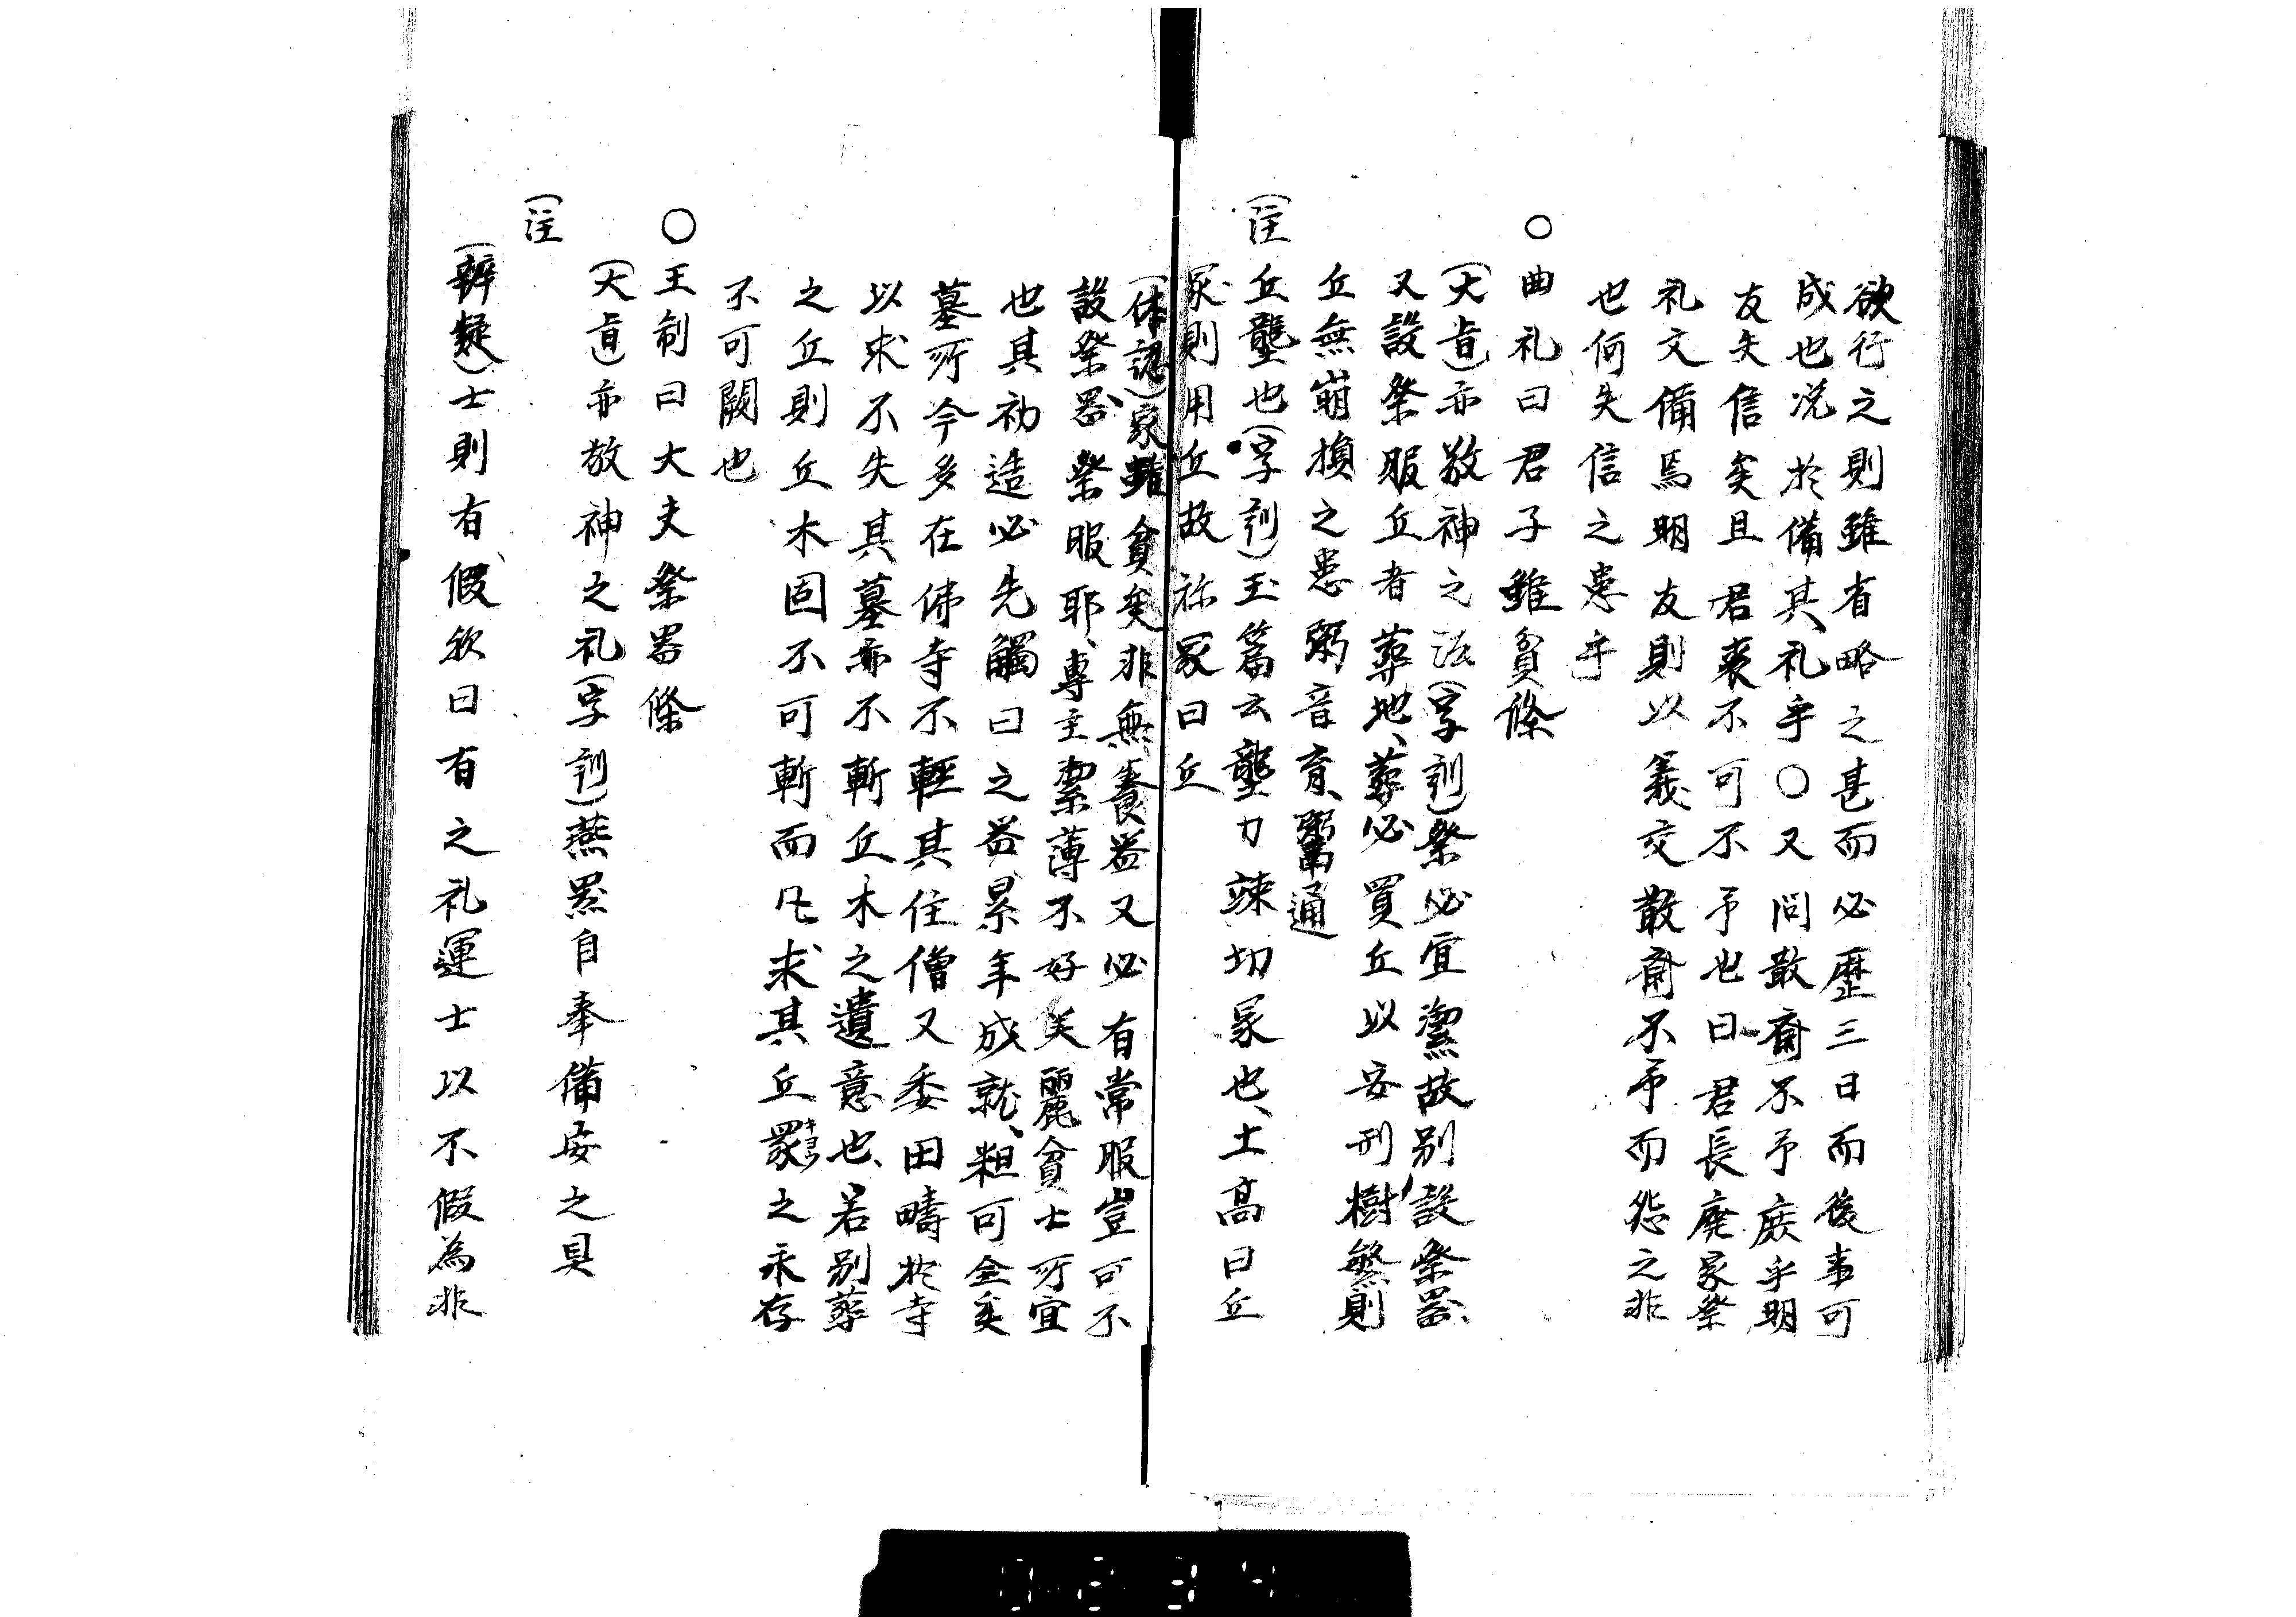 欲行之則雖有略之甚而必歴三日而後事可
成也况於備其礼乎○又問散齋不予疾乎明
友失信矣且君喪不可不予也曰君長廃家祭
礼文備焉朋友則以義交散齋不予而怨之非
也何失信之患乎
○曲礼曰君子雖貧條
(大旨)亦敬神之法(字訓)祭必宜潔故別設祭器
又設祭服丘者葬地、葬必買丘以安刑樹繁則
丘無崩損之患粥音育、鬻通
(注)丘壟也(字訓)玉篇云壟力竦切冢也、土高曰丘
冢則用丘故称冢曰丘
(体認)家雖貧矣非無養器又必有常服豈可不
設祭器祭服耶、專主潔薄不好美麗貧士所宜
也其初造必先觸曰之益累年成就、粗可全矣
墓所今多在佛寺不輕其住僧又委田疇於寺
以求不失其墓亦不斬丘木之遺意也、若別葬
之丘則丘木固不可斬而凡求其丘冢之永存
不可闕也
○王制曰大夫祭器條
(大旨)亦敬神之礼(字訓)燕器自奉備安之具
(注)
(辨疑)士則有假欤曰有之礼運士以不假為非